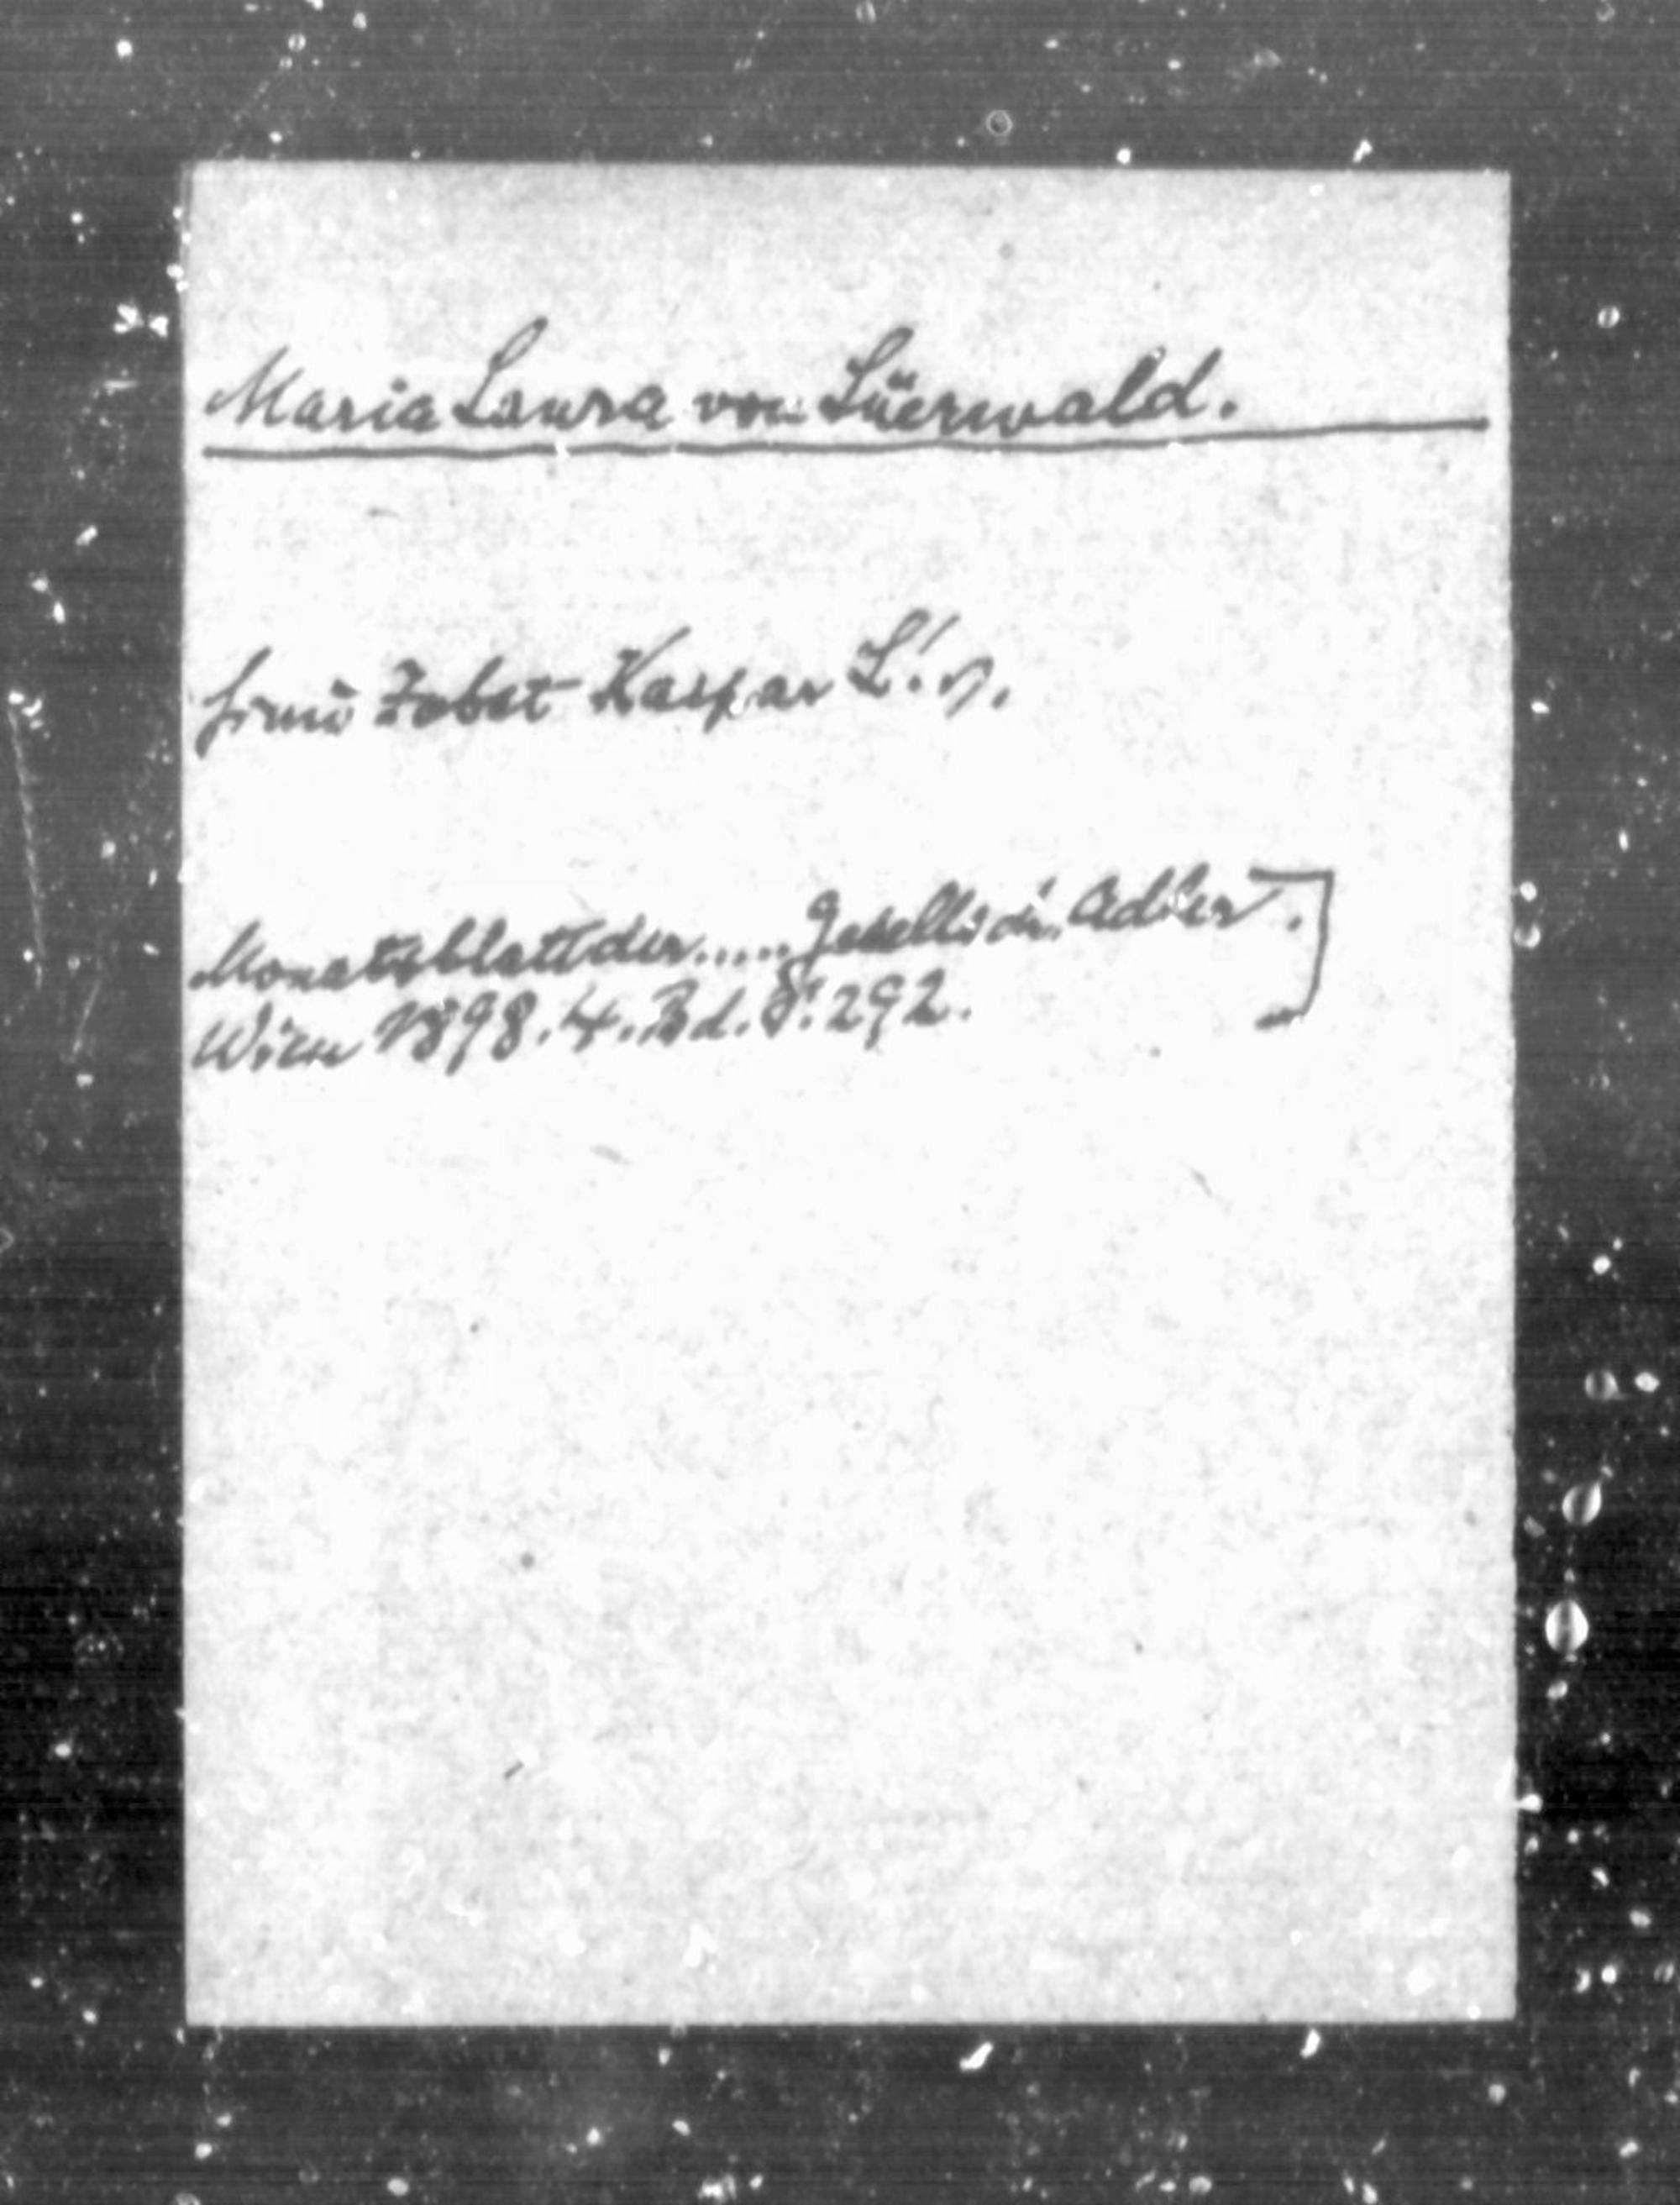 Maria Laura von Lüerwald.
Jobst Kaspar L. v.
Monatsblatt der..... Gesellsch. Adler.]
Wien 1898. 4. Bd. S. 292.